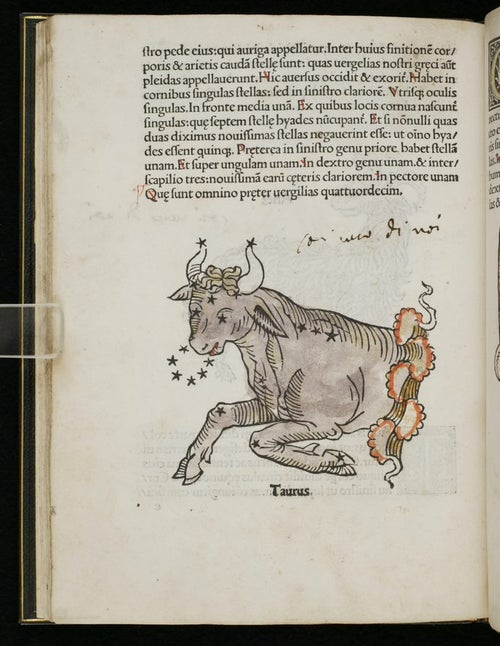 stro pede eius: qui auriga appellatur. Inter huius finitionē cor/
poris & arietis caudā stellę sunt: quas uergelias nostri gręci aūt
pleidas appellauerunt. Hic auersus occidit & exorit᷑. Habet in
cornibus singulas stellas: sed in sinistro clariorē. Vtrisq; oculis
singulas. In fronte media unā. Ex quibus locis cornua nascunt᷑
singulas: quę septem stellę hyades nūcupant᷑. Et si nōnulli quas
duas diximus nouissimas stellas negauerint esse: ut oīno hya/
des essent quinq;. Pręterea in sinistro genu priore. habet stellā
unam. Et super ungulam unam. In dextro genu unam. & inter/
scapilio tres: nouissimā earū cęteris clariorem. In pectore unam
Quę sunt omnino pręter uergilias quattuordecim.
di noi
Taurus.